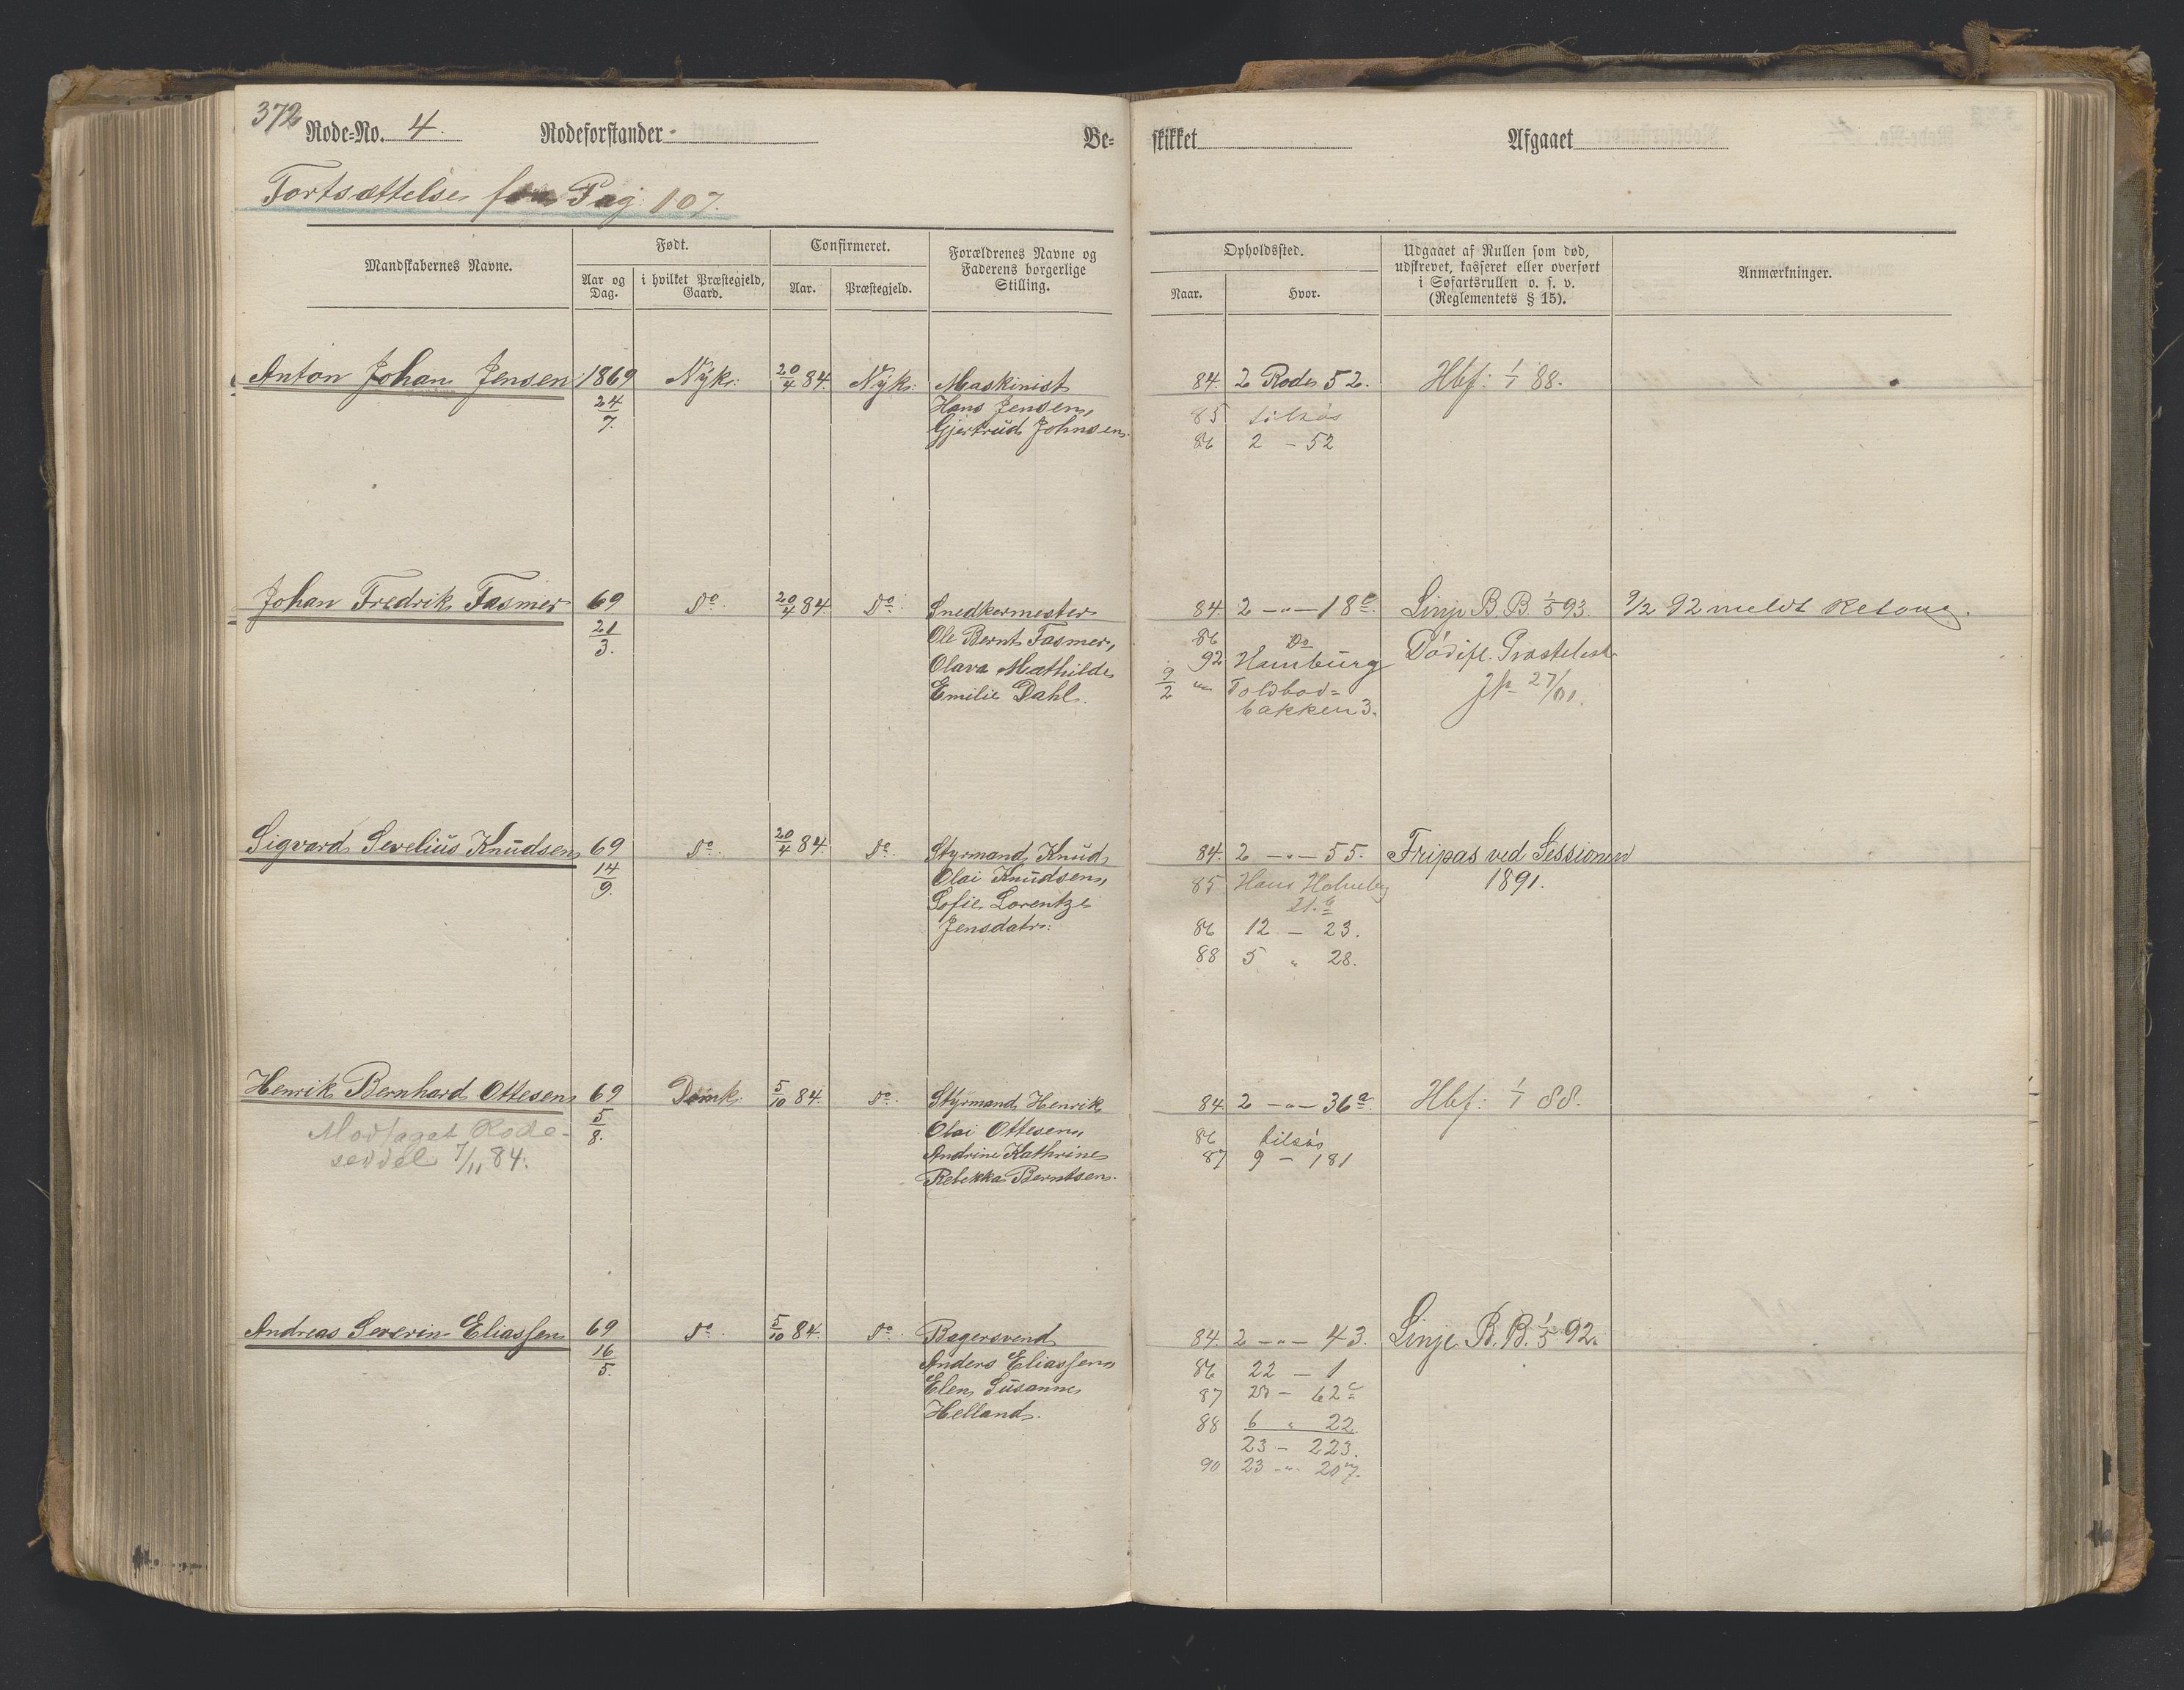 372
Rode-No. 4. Rodeforstander Be- skikket Afgaaet
Fortsættelse fra Pag: 107.
Mandskabernes Navne.
Født.
Aar og Dag.
i hvilket Præstegjeld, Gaard.
Confirmeret.
Aar.
Præstegjeld.
Forældrenes Navne og
Faderens borgerlige
Stilling.
Opholdssted.
Naar.
Hvor.
Udgaaet af Rullen som død,
udskrevet, kasseret eller overført
i Søfartsrullen o. s. v.
(Reglementets § 15).
Anmærkninger.
Anton Johan Jensen 1869 Nyk: 20/4 84. Nyk: Maskinist 84. 2 Rode 52. Hbf: 1/1 88.
24/7. Hans Jensen, 85 tilsøs
Gjertrud Johnsen. 86 2 – 52
Johan Fredrik Fasmer 69 Do. 20/4 84. Do. Snedkermester 84. 2 –"– 18c. Linje B. B. 1/5 93. 9/2 92 meldt Retour.
21/3. Ole Bernt Fasmer, 86 Do
Olava Mathilde 92 Hamburg Død ifl.
Emilie Dahl. 9/2 " Toldbod= 27/01.
bakken 3.
Sigvard Sevelius Knudsen 69 Do. 20/4 84. Do. Styrmand Knud 84. 2 –"– 55. Fripas ved Sessionen
14/9. Olai Knudsen, 85 Hans 1891.
Sofie Lorentze 21.a
Jensdatr: 86 12 – 23.
88 5 " 28.
Henrik Bernhard Ottesen 69 Domk. 5/10 84. Do. Styrmand Henrik 84. 2 –"– 36a. Hbf: 1/1 88.
Modtaget Rode- 5/8. Olai Ottesen, 86 tilsøs
seddel 7/11 84. Andrine Kathrine 87 9 – 181
Rebekka Berntsen.
Andreas Severin Eliassen 69 Do. 5/10 84. Do. Bagersvend 84. 2 –"– 43. Linje B. B. 1/5 92.
16/5. Anders Eliassen 86 22 – 1
Elen Susanne 87 – 62c
Helland. 88 6 " 22.
23 – 223.
90 23 –"– 207.